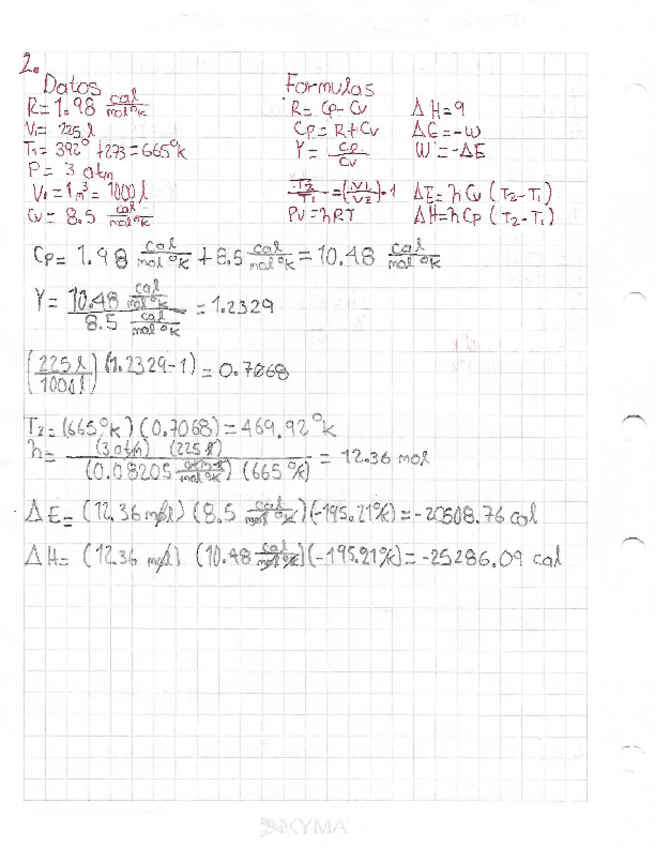 2.
Datos
R=1.98 cal/mol°k
V1= 225 l
T1= 392° +273=665°k
P= 3 atm
V1=1m³= 1000 l
Cv= 8.5 cal/mol°k
Formulas
R= Cp-Cv
Cp=R+Cv
Y= Cp/Cv
T2/T1 =(V1/V2)-1
PV=nRT
ΔH=q
ΔE=-w
W=-ΔE
ΔE=nCv (T2-T1)
ΔH=nCp (T2-T1)
Cp= 1.98 cal/mol°k +8.5 cal/mol°k = 10.48 cal/mol°k
Y= 10.48 cal/mol°k / 8.5 cal/mol°k = 1.2329
(225 l/1000 l) (1.2329-1) = 0.7068
T2=(665°k) (0.7068) = 469.92°k
n= (3 atm) (225 l) / (0.08205 atm·l/mol°k) (665°k) = 12.36 mol
ΔE= (12.36 mol) (8.5 cal/mol°k)(-195.21°k)=-20508.76 cal
ΔH= (12.36 mol) (10.48 cal/mol°k)(-195.21°k)=-25286.09 cal
KYMA